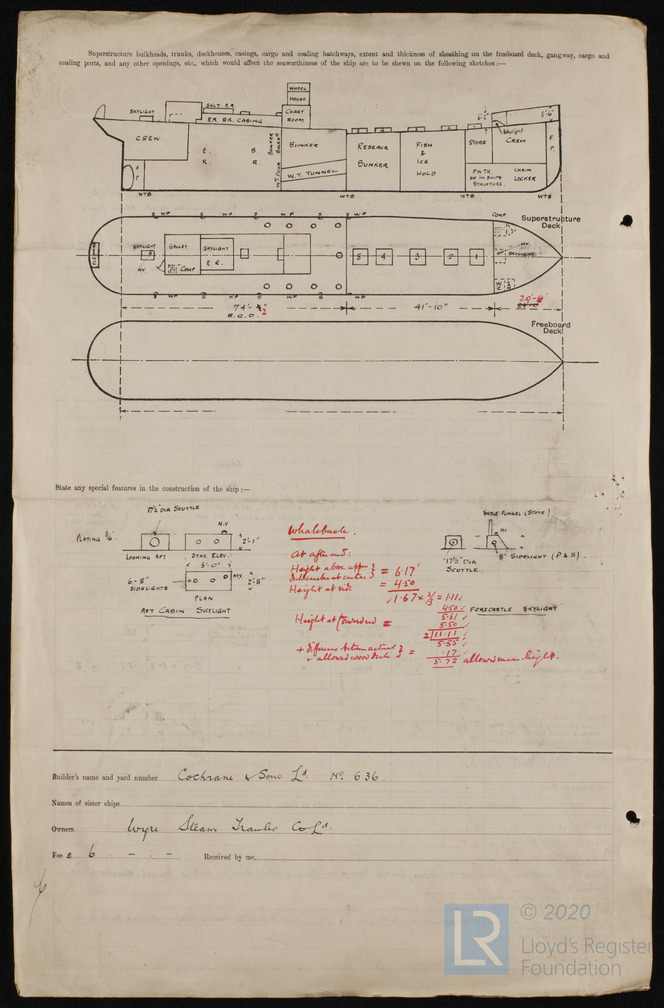 Superstructure bulkheads, trunks, deckhouses, casings, cargo and coaling hatchways, extent and thickness of sheathing on the freeboard deck, gangway, cargo and
coaling ports, and any other openings, etc., which would affect the seaworthiness of the ship are to be shewn on the following sketches :—
WHEEL
HOUSE
CHART
ROOM
SKYLIGHT
SKLT. E.R.
ER. BR. CASING
CREW
E.
R.
B.
R.
W.T. DOOR
BUNKER
W.T. TUNNEL
RESERVE
BUNKER
FISH
&
ICE
HOLD
STORE
Skylight
CREW
5'-6"
F.
P.
A
P
F W TK
STRUCTURE
CHAIN
LOCKER
WTB
WTB
WTB
WTB
S W.P. S W.P. S W.P. S W.P.
COMP.
Superstructure
Deck
SKYLIGHT
GALLEY
SKYLIGHT
E.R.
COMP
M.V.
5 4 3 2 1
M.V.
SKYLIGHT
S W.P. S W.P. S W.P. S W.P.
74'-2"
R.Q.D.
41'-10"
Freeboard
Deck
State any special features in the construction of the ship :—
17½" DIA SCUTTLE
PLATING
N.V
2'-1"
LOOKING AFT
STAR. ELEV.
5'-0"
6-8"
SIDELIGHTS
2'-8"
PLAN
AFT CABIN SKYLIGHT
Whaleback.
At after end:
Height above upper
deck centre at centre = 6.17'
Height at side = 4.50
1.67 x 2/3 = 1.11
4.50
5.61
Height at forward end = 5.50
2)11.11
5.55
+ difference between actual
& allowed wood deck = .17
5.72 allowed mean height.
BOGIE FUNNEL (STOVE)
MV
17½" DIA
SCUTTLE
8" SIDELIGHT (P & S).
FORECASTLE SKYLIGHT
Builder's name and yard number Cochrane & Sons Ld No. 636.
Names of sister ships
Owners Wyre Steam Trawler Co Ld.
Fee £ 6 - . -
Received by me,
© 2020
LR
Lloyd's Register
Foundation